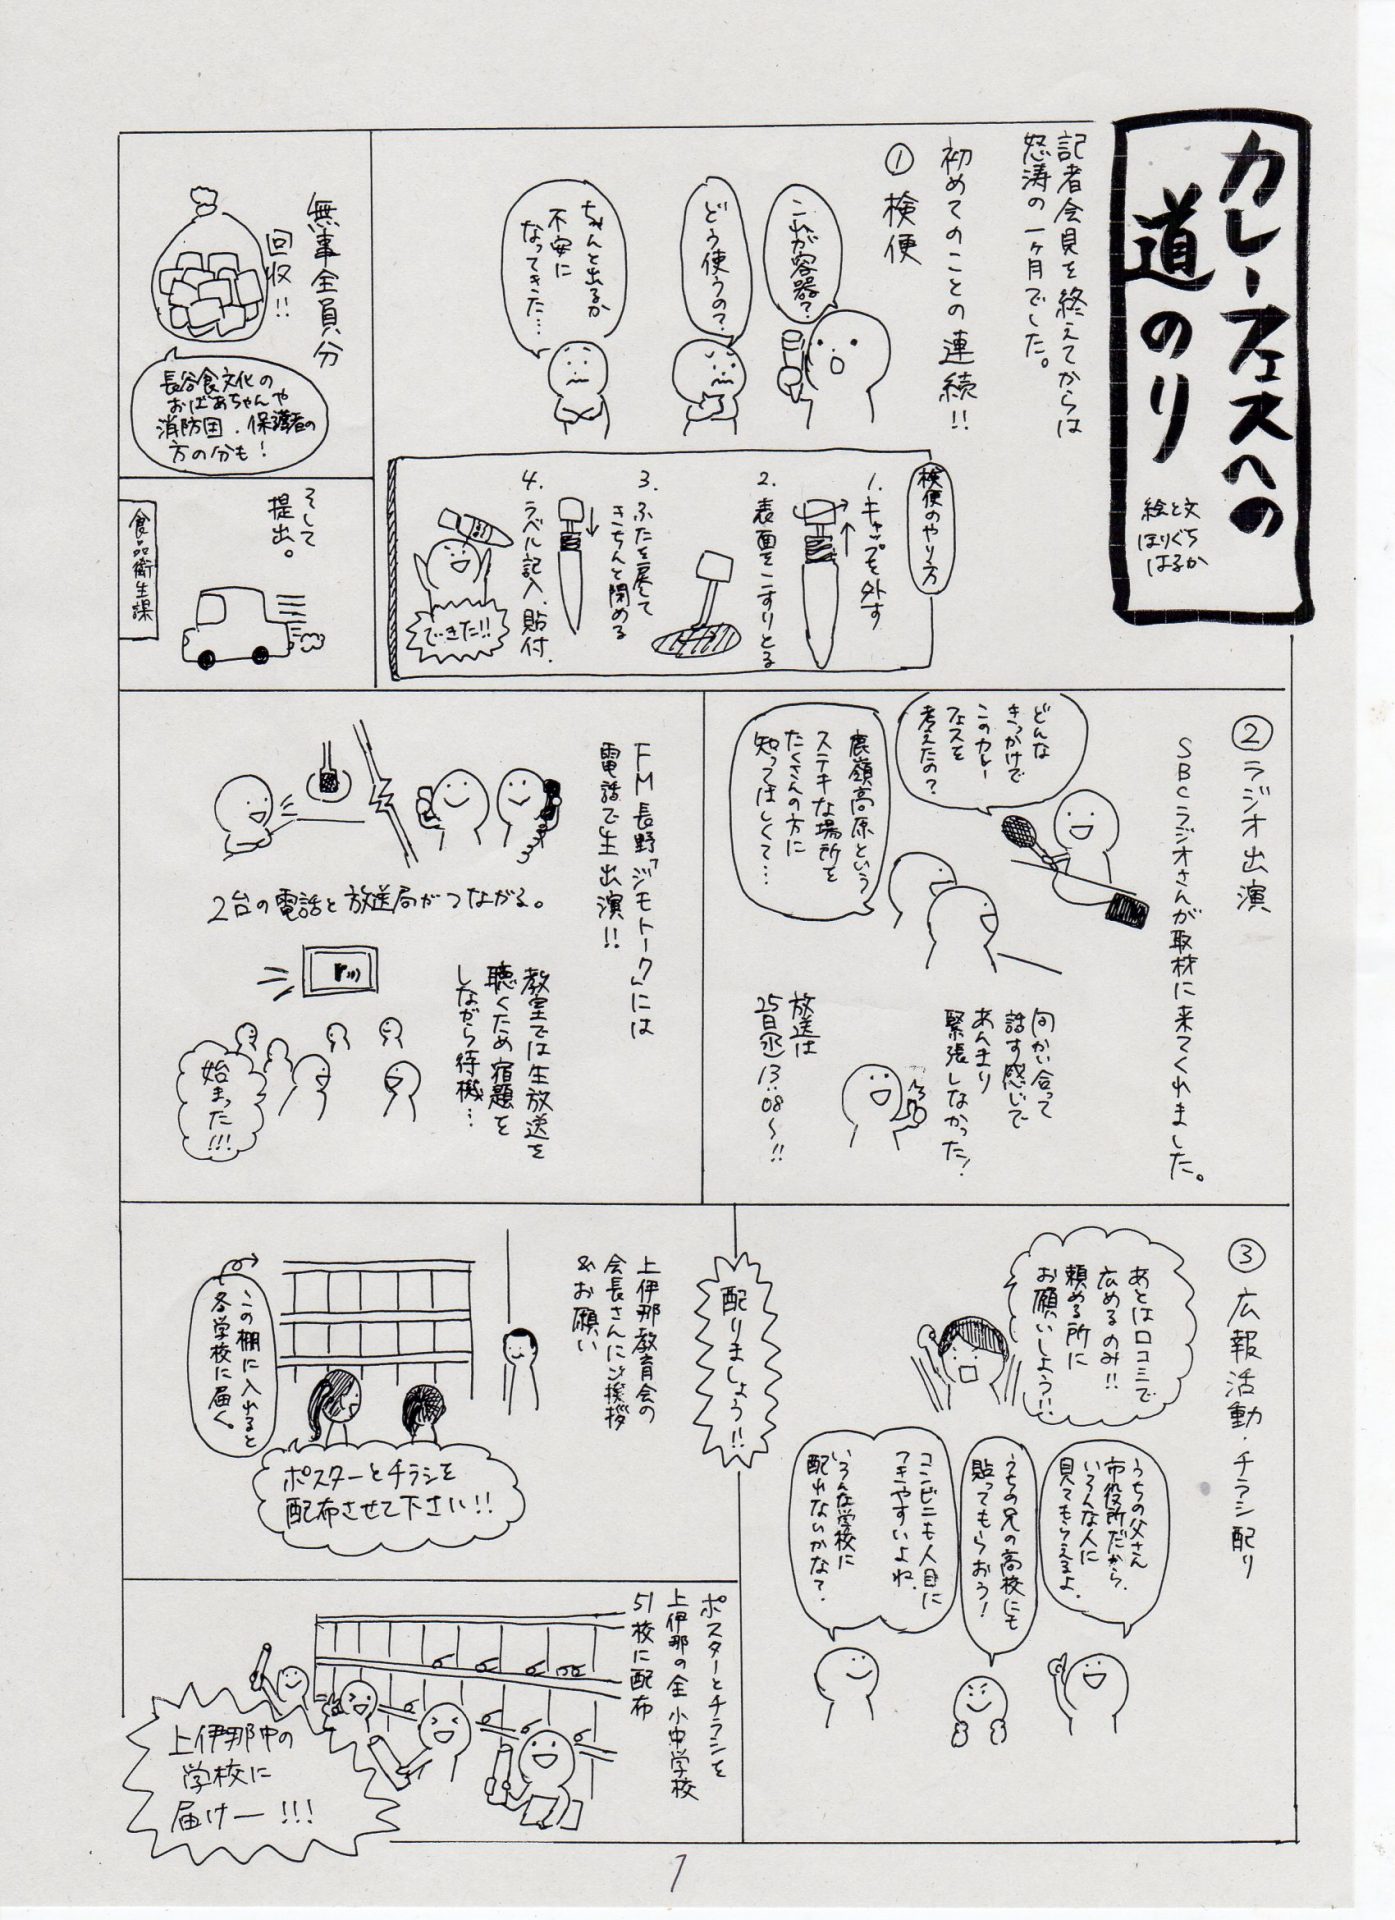 カレーフェスへの
道のり
絵と文
ほりぐち
はるか
記者会見を終えてからは
怒涛の一ヶ月でした。
初めてのことの連続!!
① 検便
これが容器?
どう使うの?
ちゃんと出るか
不安に
なってきた…
検便のやり方
1. キャップを外す
2. 表面をこすりとる
3. ふたを戻して
きちんと閉める
4. ラベル記入、貼付、
できた!!
無事全員分
回収!!
長谷食文化の
おばあちゃんや
消防団、保護者の
方の分も!
そして
提出。
食品衛生課
② ラジオ出演
SBCラジオさんが取材に来てくれました。
どんな
きっかけで
このカレー
フェスを
考えたの?
鹿嶺高原という
ステキな場所を
たくさんの方に
知ってほしくて…
向かい合って
話す感じで
あんまり
緊張しなかった!
放送は
25日㊌13:08〜!!
FM長野「ジモトーク」には
電話で生出演!!
2台の電話と放送局がつながる。
教室では生放送を
聴くため宿題を
しながら待機…
始まった!!!
③ 広報活動・チラシ配り
あとは口コミで
広めるのみ!!
頼める所に
お願いしよう!!
うちの父さん
市役所だから、
いろんな人に
見てもらえるよ。
うちの兄の高校にも
貼ってもらおう!
コンビニも人目に
つきやすいよね。
いろんな学校に
配れないかな?
配りましょう!!
上伊那教育会の
会長さんにご挨拶
&お願い
この棚に入れると
各学校に届く。
ポスターとチラシを
配布させて下さい!!
ポスターとチラシを
上伊那の全小中学校
51校に配布
上伊那中の
学校に
届けー!!!
1